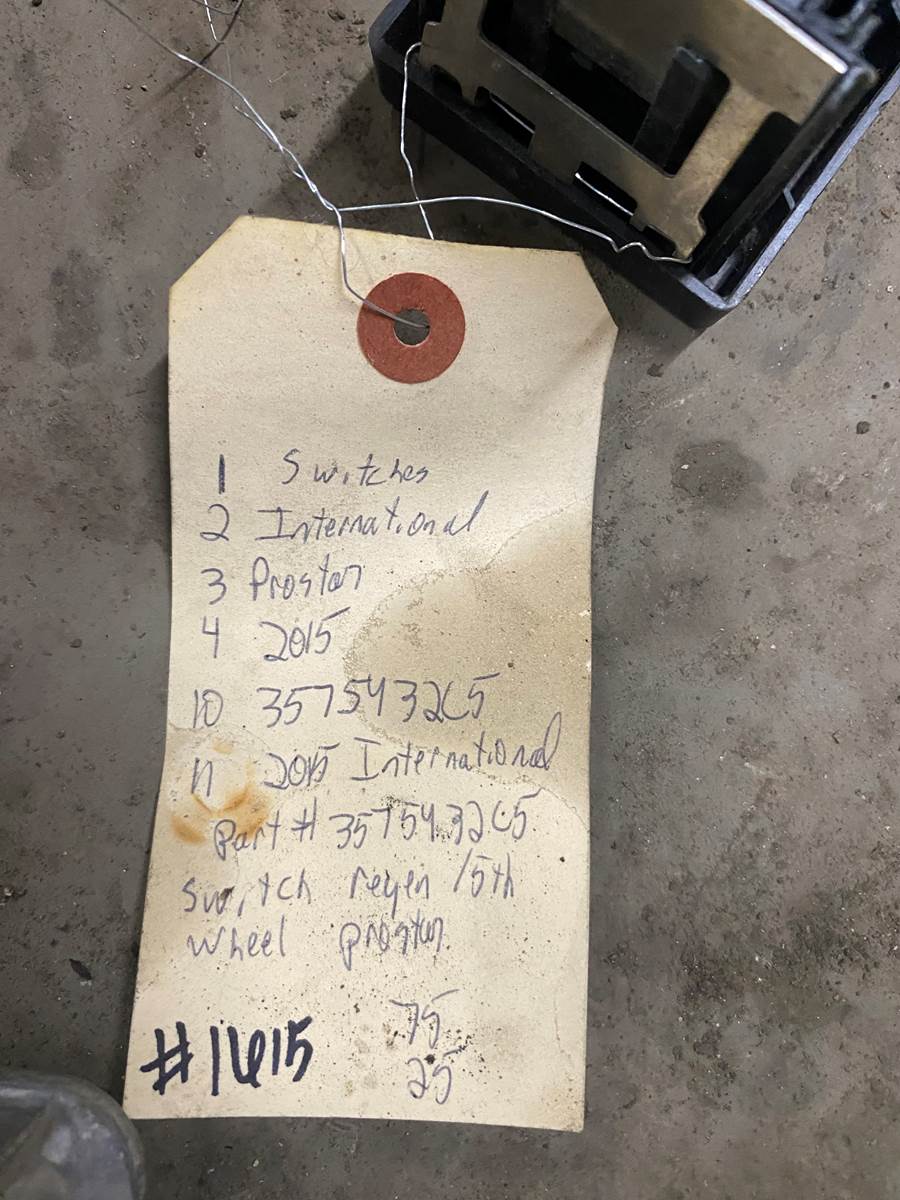 1 Switches
2 International
3 Prostar
4 2015
10 3575432C5
11 2015 International
Part # 3575432C5
Switch regen /5th
wheel prostar
75
25
#1615